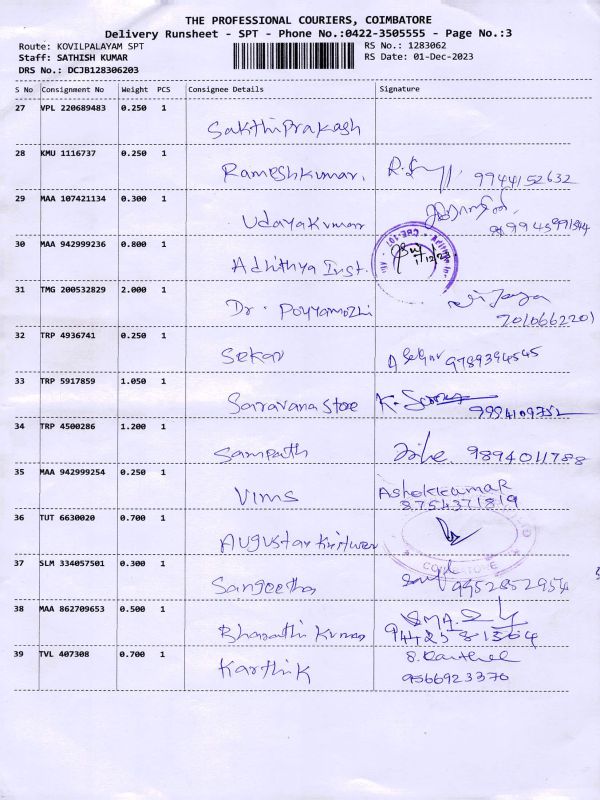 THE PROFESSIONAL COURIERS, COIMBATORE
Delivery Runsheet - SPT - Phone No.:0422-3505555 - Page No.:3
Route: KOVILPALAYAM SPT RS No.: 1283062
Staff: SATHISH KUMAR RS Date: 01-Dec-2023
DRS No.: DCJB128306203
S No Consignment No Weight PCS Consignee Details Signature
27 VPL 220689483 0.250 1
Sakthiprakash
28 KMU 1116737 0.250 1
Rameshkumar. 9944152632
29 MAA 107421134 0.300 1
Udayakumar
30 MAA 942999236 0.800 1
Adhithya Inst. 1/12/23
31 TMG 200532829 2.000 1
Dr. Poyyamozhi
7010662201
32 TRP 4936741 0.250 1
Sekar A Sekar 9789394545
33 TRP 5917859 1.050 1
Saravana Store K.
34 TRP 4500286 1.200 1
Sampath 9894011788
35 MAA 942999254 0.250 1
Vims Ashokkumar
8754371819
36 TUT 6630020 0.700 1
Augustar
37 SLM 334057501 0.300 1
COIMBATORE
Sangeetha 9952852954
38 MAA 862709653 0.500 1
Bharathi Kumar 9442581364
39 TVL 407308 0.700 1
Karthik
9566923370